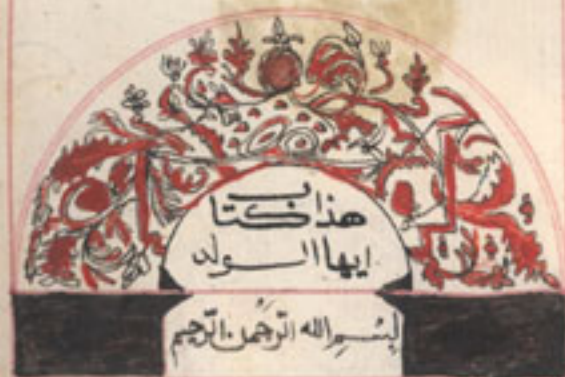 هذا كتاب
ايها الولد
بِسْمِ الله الرّحمن الرّحيم